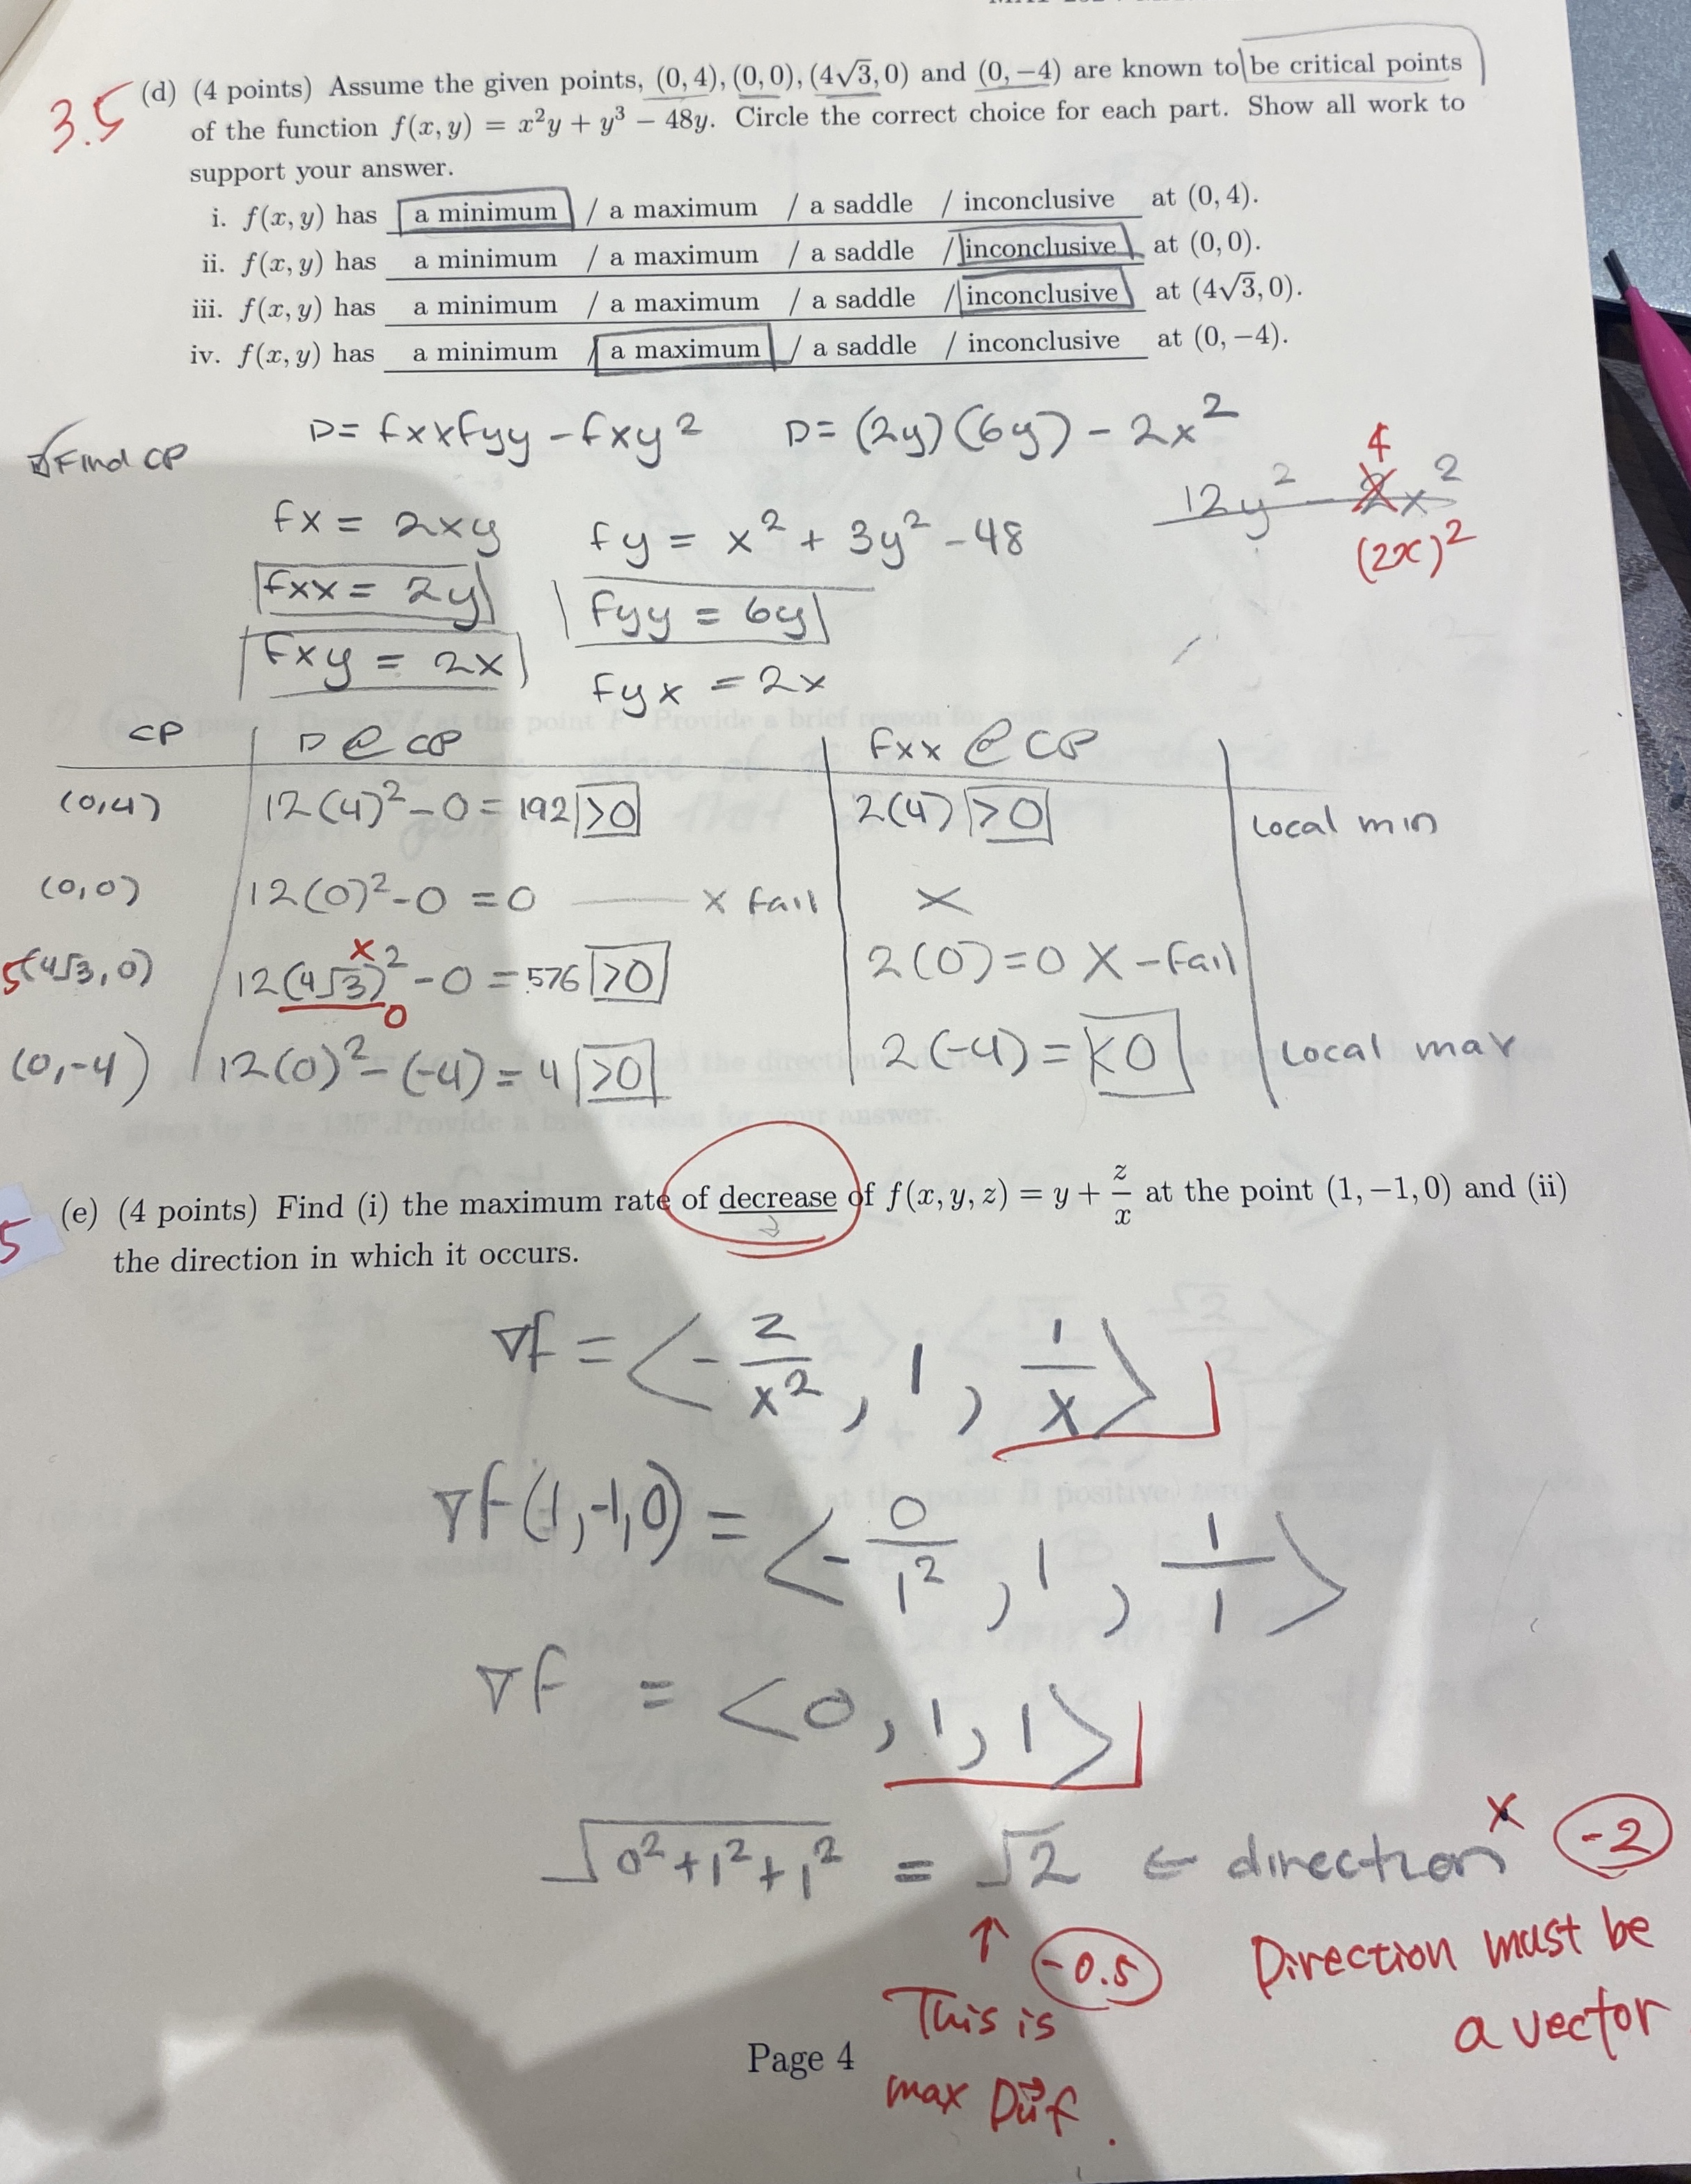 3.5
(d) (4 points) Assume the given points, (0, 4), (0, 0), (4√3, 0) and (0, −4) are known to be critical points
of the function f(x, y) = x²y + y³ − 48y. Circle the correct choice for each part. Show all work to
support your answer.
i. f(x, y) has a minimum / a maximum / a saddle / inconclusive at (0, 4).
ii. f(x, y) has a minimum / a maximum / a saddle / inconclusive at (0, 0).
iii. f(x, y) has a minimum / a maximum / a saddle / inconclusive at (4√3, 0).
iv. f(x, y) has a minimum / a maximum / a saddle / inconclusive at (0, −4).
Find CP
D = fxxfyy − fxy² D = (2y)(6y) − 2x²
4
12y² − 2x²
(2x)²
fx = 2xy fy = x² + 3y² − 48
fxx = 2y fyy = 6y
fxy = 2x fyx = 2x
CP D @ CP fxx @ CP
(0,4) 12(4)² − 0 = 192 >0 2(4) >0 Local min
(0,0) 12(0)² − 0 = 0 x fail x
(4√3, 0) 12(4√3)² − 0 = 576 >0 2(0) = 0 X − fail
0
(0,−4) 12(0)² − (−4) = 4 >0 2(−4) = <0 Local max
5
(e) (4 points) Find (i) the maximum rate of decrease of f(x, y, z) = y + z/x at the point (1, −1, 0) and (ii)
the direction in which it occurs.
∇f = <− z/x², 1, 1/x>
∇f(1,−1,0) = <− 0/1², 1, 1/1>
∇f = <0, 1, 1>
√0² + 1² + 1² = √2 ← direction x -2
↑ -0.5 Direction must be
This is a vector
Page 4
max Dūf.